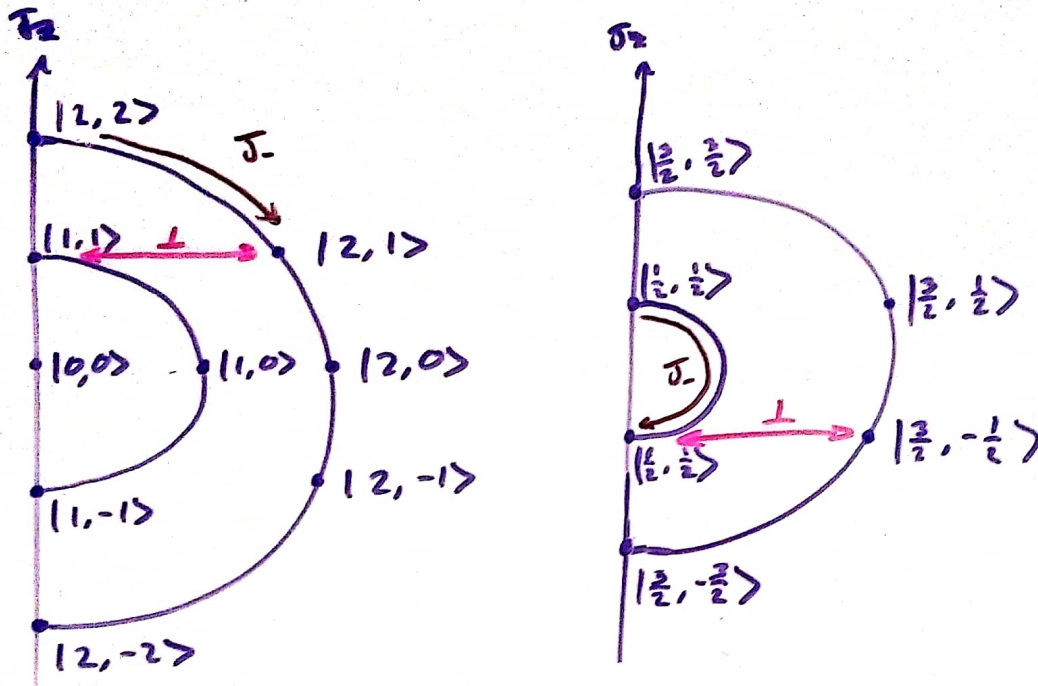 Jz
|2,2>
J-
|1,1>
⊥
|2,1>
|0,0>
|1,0>
|2,0>
|2,-1>
|1,-1>
|2,-2>
Jz
|3/2, 3/2>
|1/2, 1/2>
|3/2, 1/2>
J-
⊥
|3/2, -1/2>
|1/2, 1/2>
|3/2, -3/2>